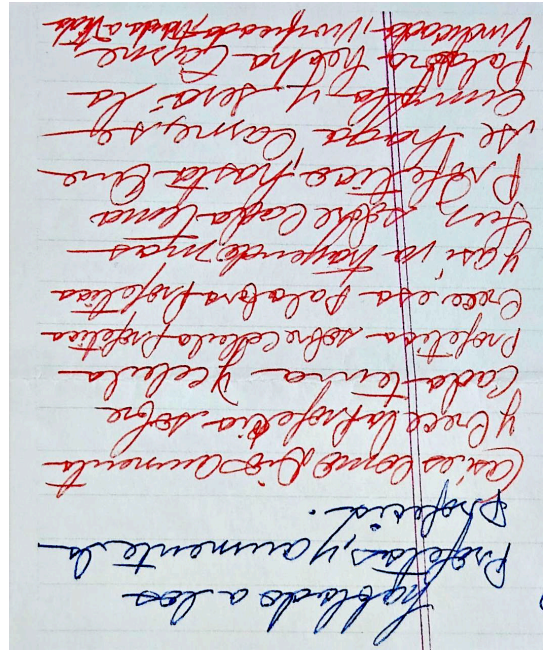 hablado a los
Profetas, y aumenta la
profecia.
Así es como Dios aumenta
y crece la Profecia sobre
Cada tenira y celula
Profetica sobre celula profetica
Crece esa palabra Profetica
y asi va trayendo mas
luz sobre Cada tema
Profetico, hasta que
se haga Carne, se
cumpla y será la
Palabra hecha Carne
Vindicada, Vivificada,